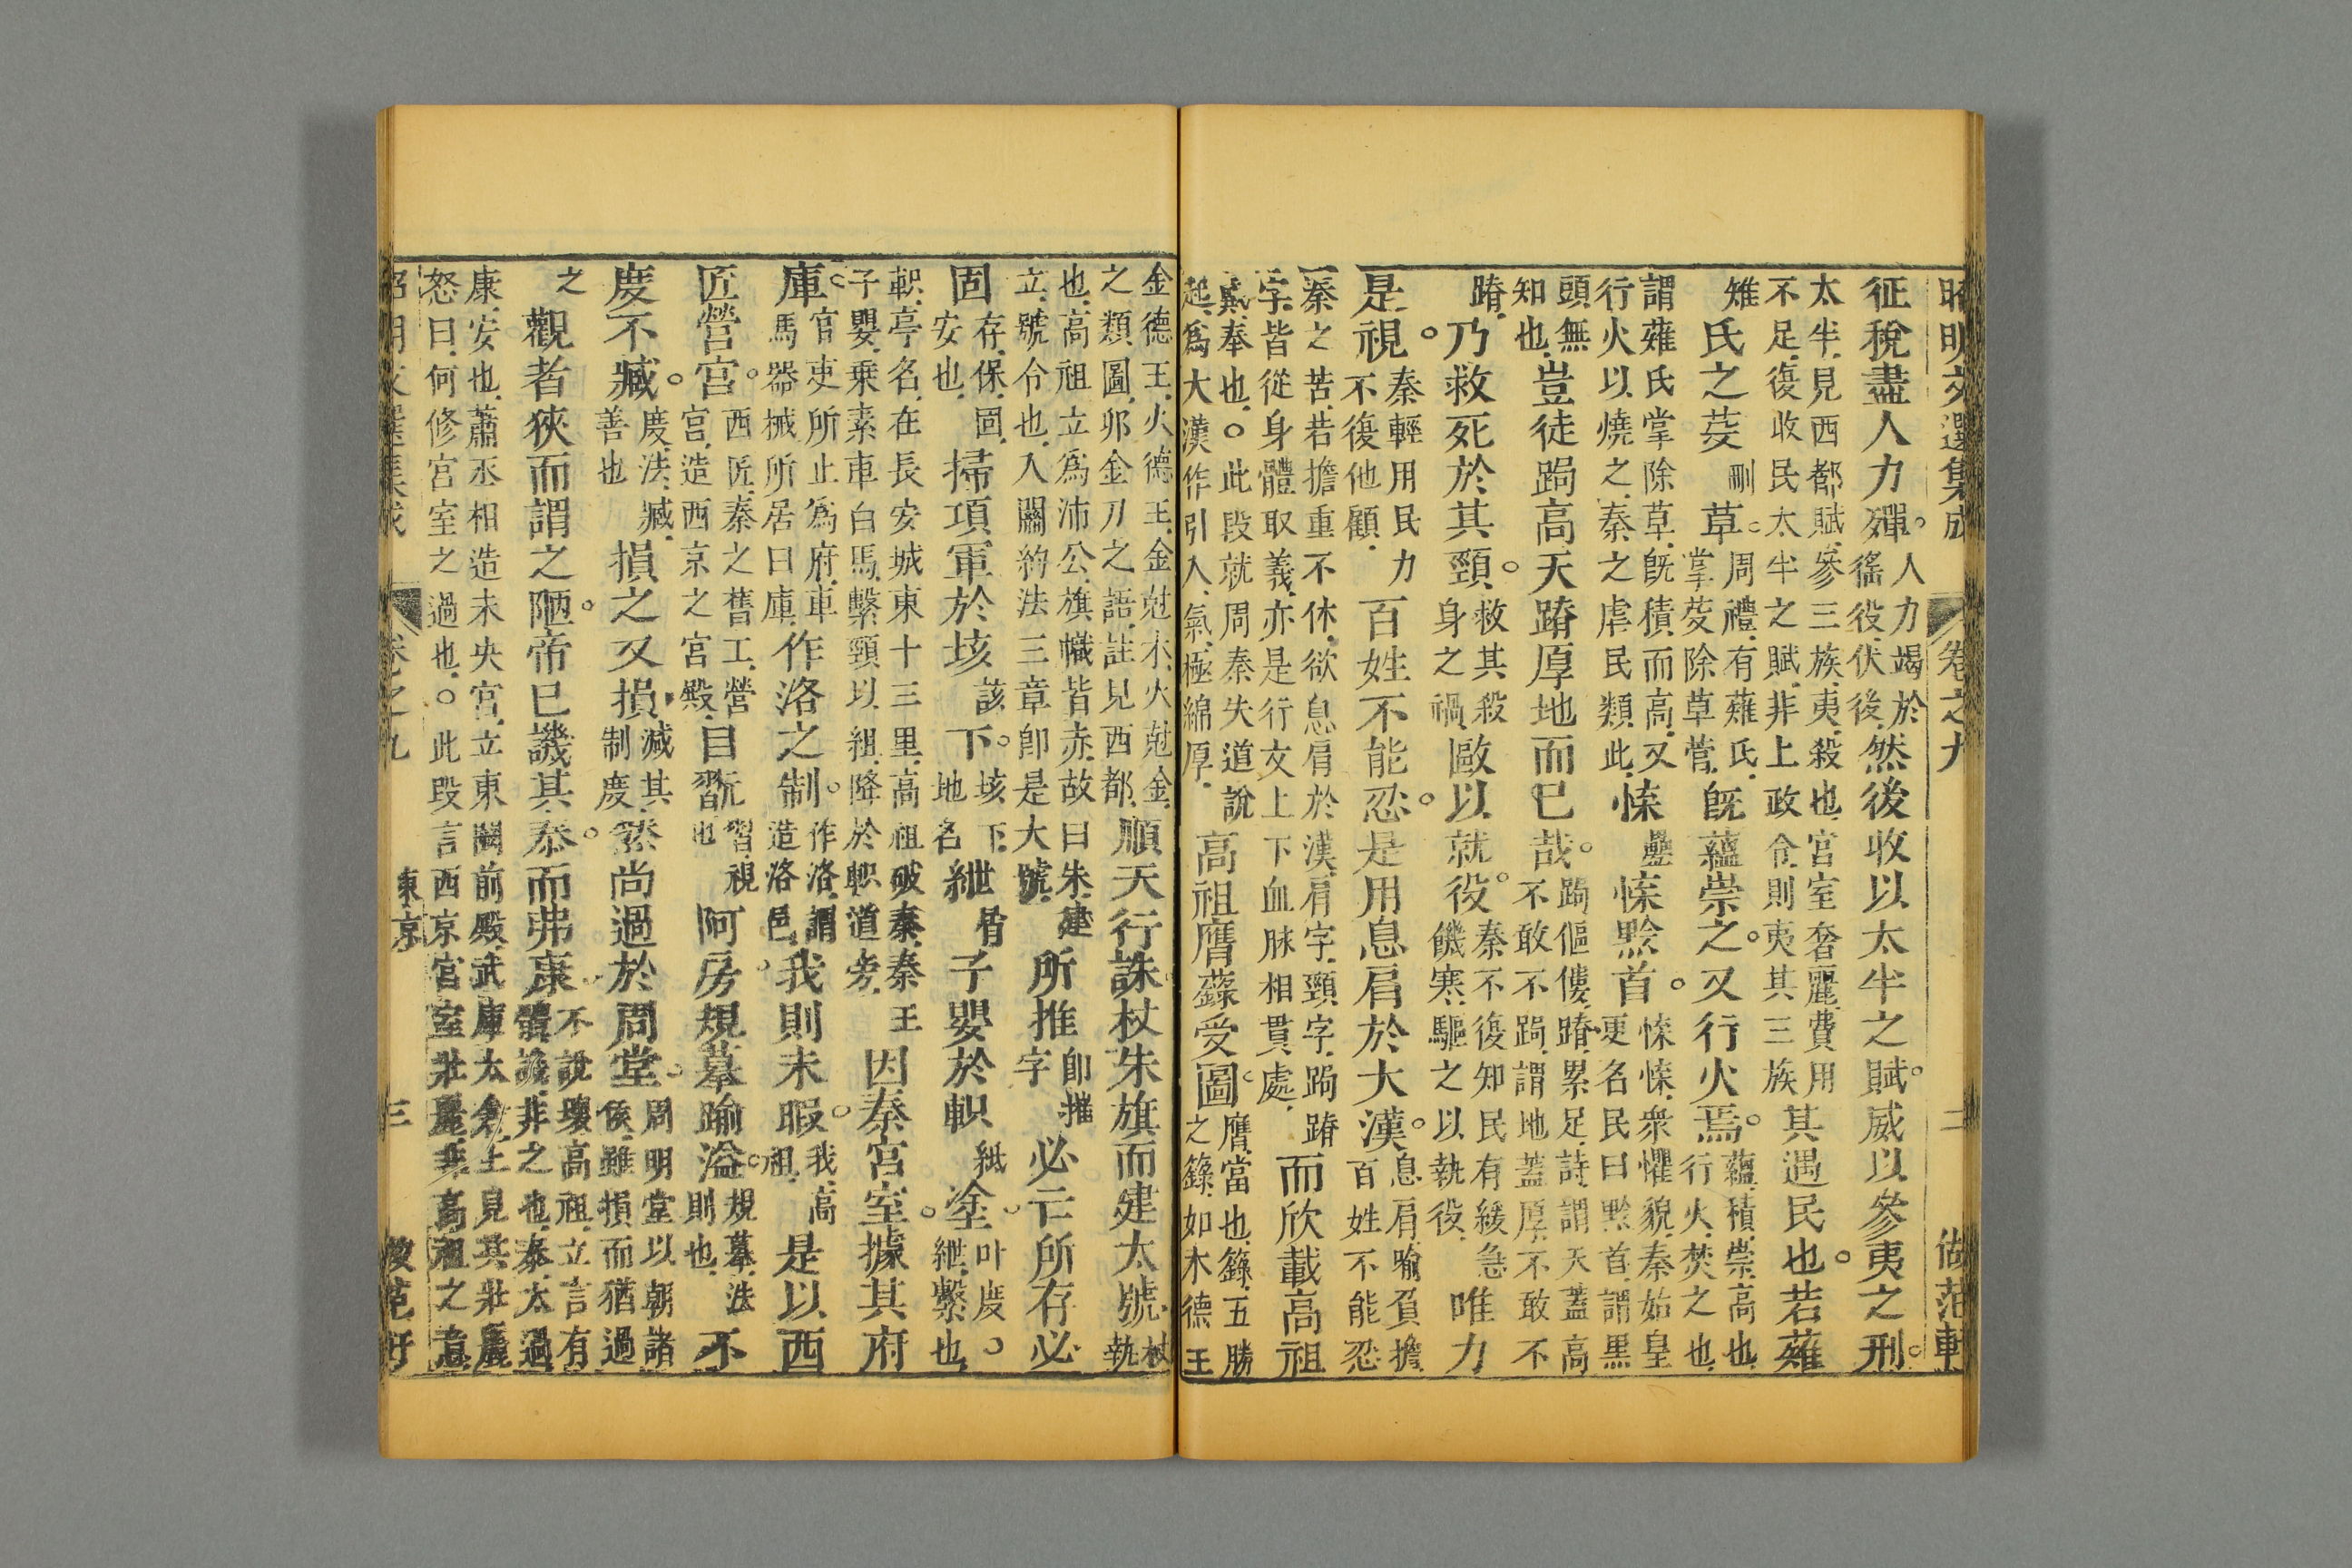 昭明文選集成 卷之九 二 倣范軒
征稅盡人力殫。人力竭於徭役伏後然後收以太半之賦。威以參夷之刑。
太半見西都賦參三族夷殺也官室奢麗費用不足復收民太半之賦非上政令則夷其三族其遇民也。若薙
雉氏之芟刪草。周禮有薙氏掌芟除草菅旣蘊崇之。又行火焉。蘊積崇高也行火焚之也
謂薙氏掌除草旣積而高又行火以燒之秦之虐民類此惵惵黔首。惵惵衆懼貌秦始皇更名民曰黔首謂黑
頭無知也豈徒跼高天蹐厚地而已哉。跼傴僂蹐累足詩謂天蓋高不敢不跼謂地蓋厚不敢不
蹐乃救死於其頸。救其殺身之禍敺以就役。秦不復知民有緩急饑寒驅之以執役唯力
是視。秦輕用民力不復他顧百姓不能忍。是用息肩於大漢。息肩喻負擔百姓不能忍
秦之苦若擔重不休欲息肩於漢肩字頸字跼蹐字皆從身體取義亦是行文上下血脉相貫處而欣載高祖
戴奉也○此段就周秦失道說起爲大漢作引入氣極綿厚高祖膺籙受圖。膺當也籙五勝之籙如木德王
金德王火德王金尅木火尅金之類圖卯金刀之語註見西都順天行誅杖朱旗而建太號杖執
也高祖立爲沛公旗幟皆赤故曰朱建立號令也入關約法三章卽是大號所推卽摧字必亡所存必
固存保固安也掃項軍於垓該下。垓下地名紲屑子嬰於軹紙塗。叶度○紲繫也
軹亭名在長安城東十三里高祖破秦秦王子嬰乗素車白馬繫頸以組降於軹道旁因秦宮室。據其府
庫。官吏所止爲府車馬器械所居曰庫作洛之制。作洛謂造洛邑我則未暇。我高祖是以西
匠營宮。西匠秦之舊工營宮造西京之宮殿目翫習視也阿房。規摹踰溢。規摹法則也不
度不臧。度法臧善也損之又損減其制度然尚過於周堂。周明堂以朝諸侯雖損而猶過
之觀者狹而謂之陋。帝已譏其泰而弗康。不說壞高祖立言有體譏非之也泰太過
康安也蕭丞相造未央宮立東闕前殿武庫太倉上見其壯麗怒曰何修宮室之過也○此段言西京宮室壯麗非高祖之意
昭明文選集成 卷之九 東京 三 倣范軒